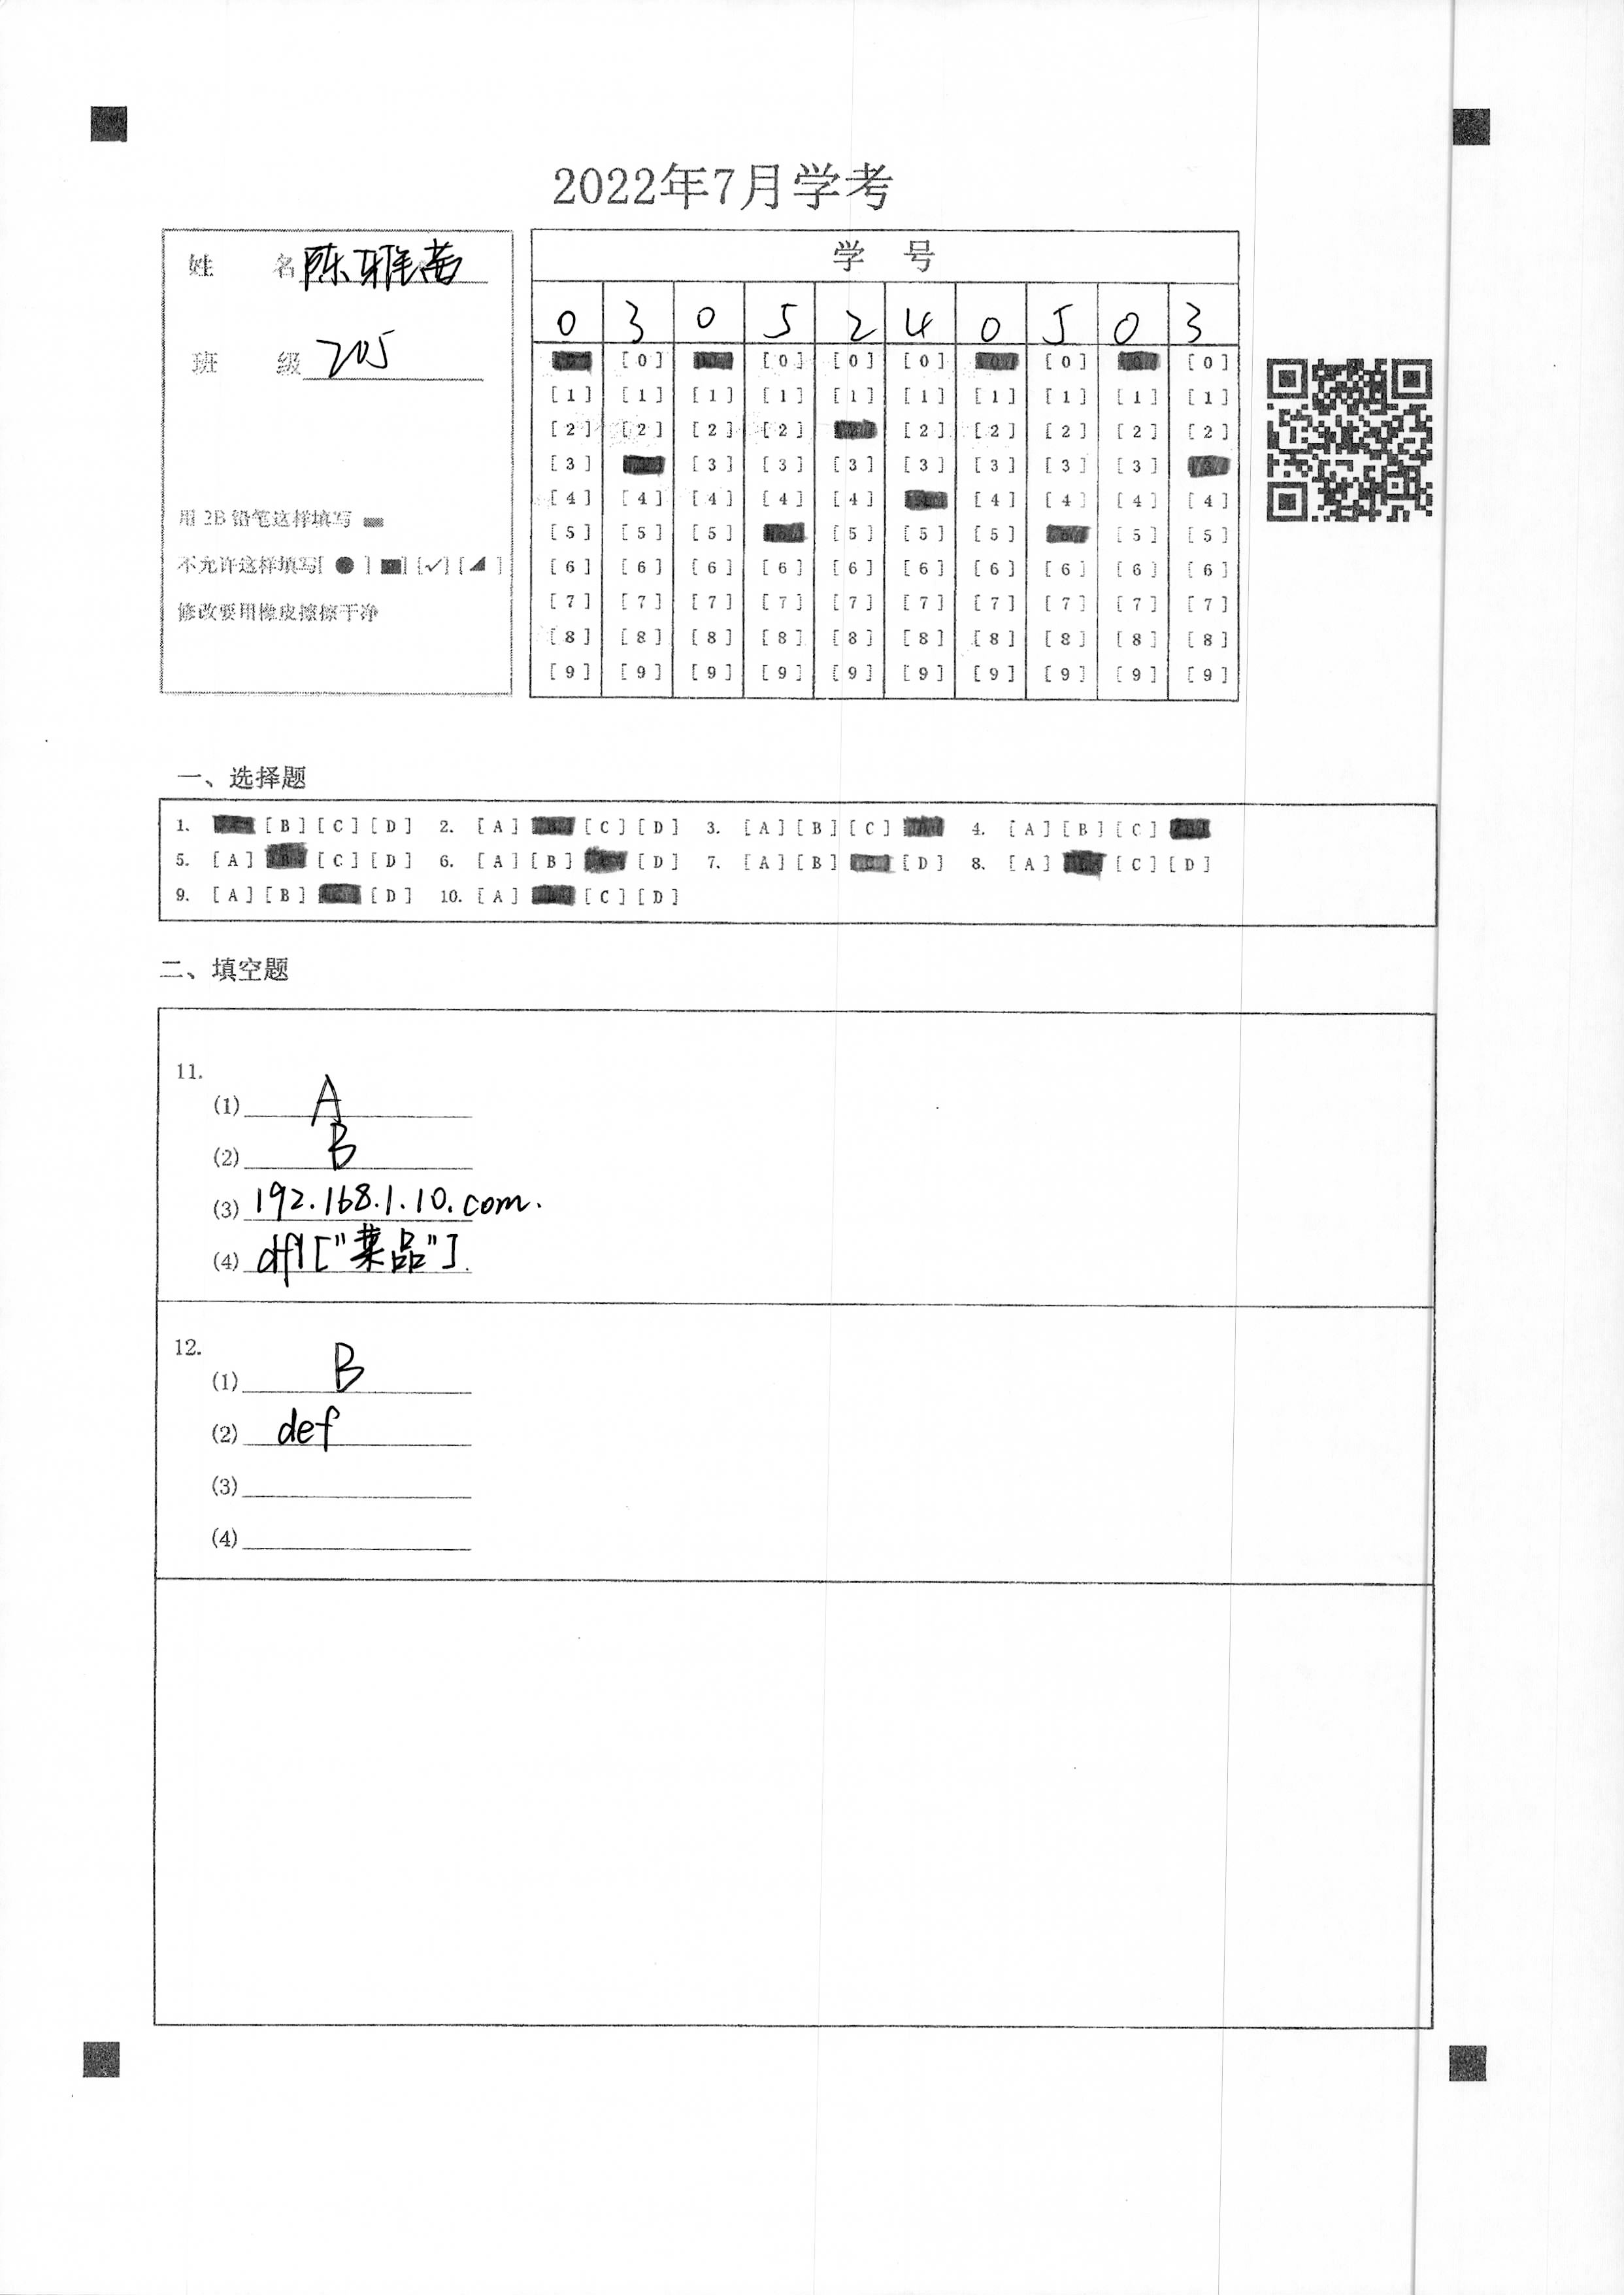 2022年7月学考
姓 名 陈雅茜
班 级 205
用 2B 铅笔这样填写
不允许这样填写[ ● ] [■] [✓] [◢ ]
修改要用橡皮擦擦干净
学 号
0 3 0 5 2 4 0 5 0 3
[0] [0] [0] [0] [0] [0]
[1] [1] [1] [1] [1] [1] [1] [1] [1] [1]
[2] [2] [2] [2] [2] [2] [2] [2] [2]
[3] [3] [3] [3] [3] [3] [3] [3]
[4] [4] [4] [4] [4] [4] [4] [4] [4]
[5] [5] [5] [5] [5] [5] [5] [5]
[6] [6] [6] [6] [6] [6] [6] [6] [6] [6]
[7] [7] [7] [7] [7] [7] [7] [7] [7] [7]
[8] [8] [8] [8] [8] [8] [8] [8] [8] [8]
[9] [9] [9] [9] [9] [9] [9] [9] [9] [9]
一、选择题
1. [B] [C] [D] 2. [A] [C] [D] 3. [A] [B] [C] 4. [A] [B] [C]
5. [A] [C] [D] 6. [A] [B] [D] 7. [A] [B] [D] 8. [A] [C] [D]
9. [A] [B] [D] 10. [A] [C] [D]
二、填空题
11.
(1) A
(2) B
(3) 192.168.1.10.com.
(4) df1["菜品"].
12.
(1) B
(2) def
(3)
(4)